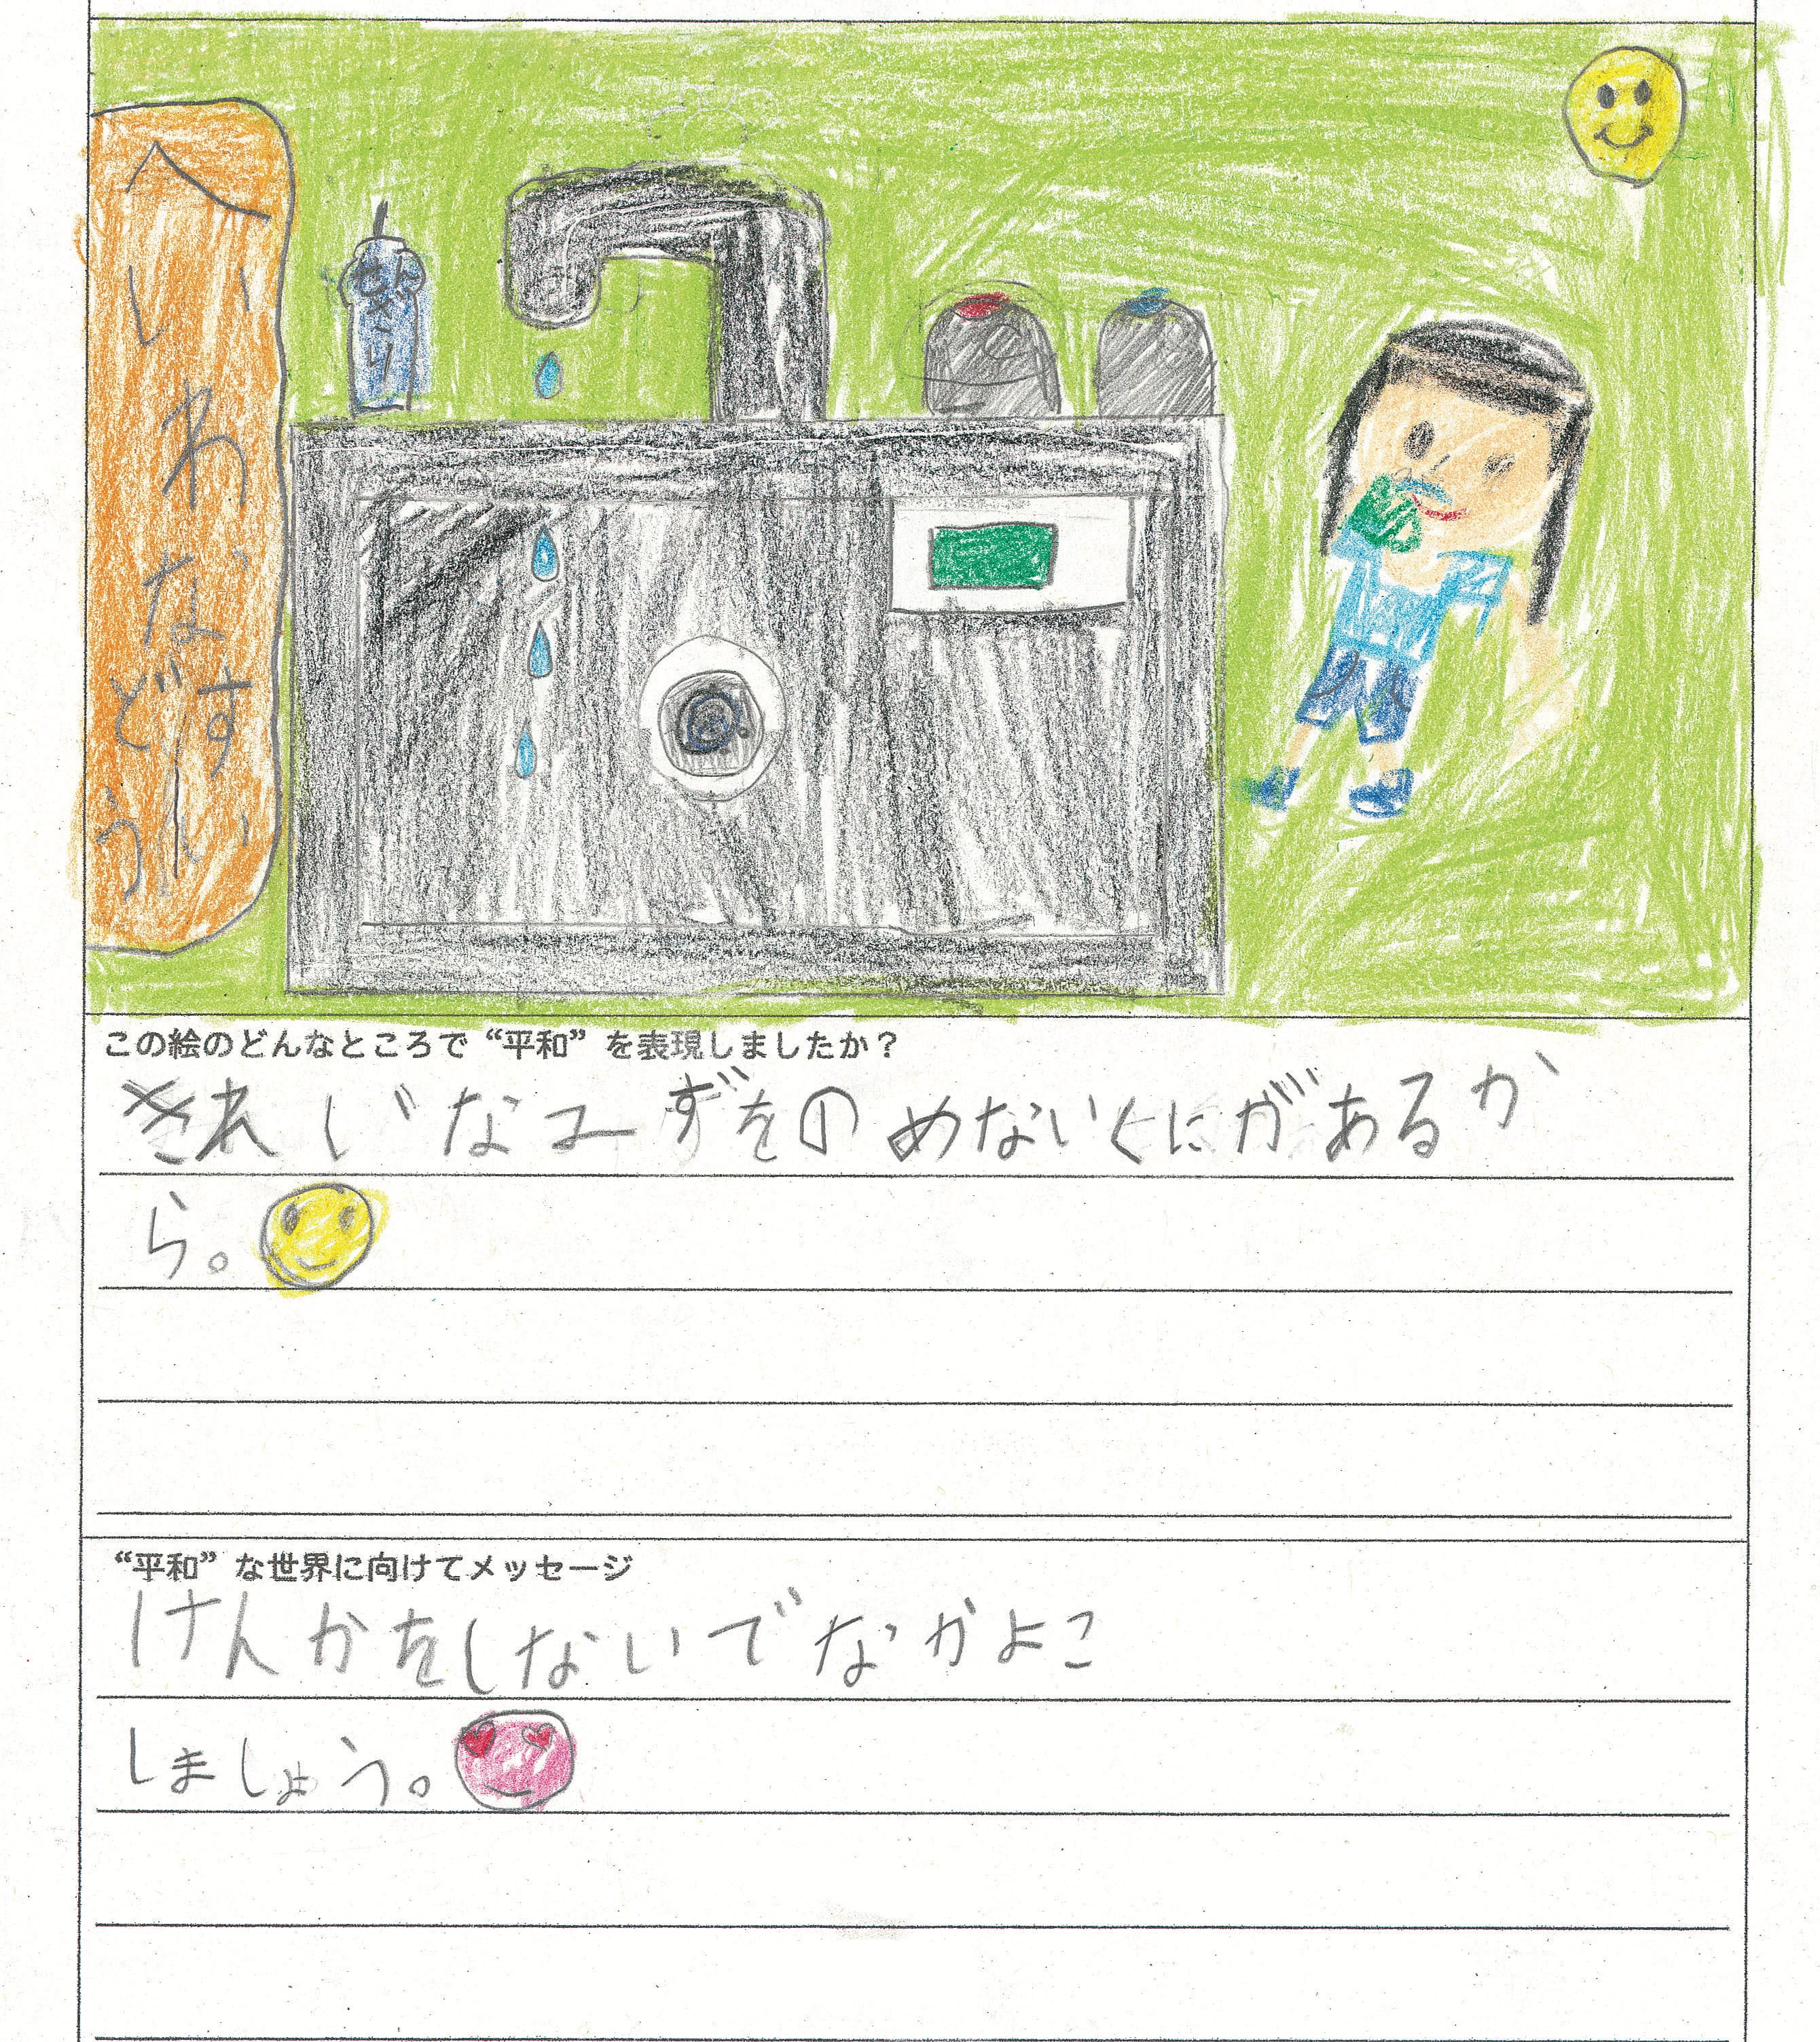 へいわな
すい
どう
せんざい
この絵のどんなところで“平和”を表現しましたか？
きれいなみずをのめないくにがあるか
ら。
“平和”な世界に向けてメッセージ
けんかをしないでなかよこ
しましょう。